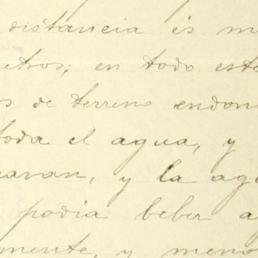 distancia es m
etros; en todo este
os de terreno endon
toda el agua, y
varan, y la agu
podia beber a
mente, y menos